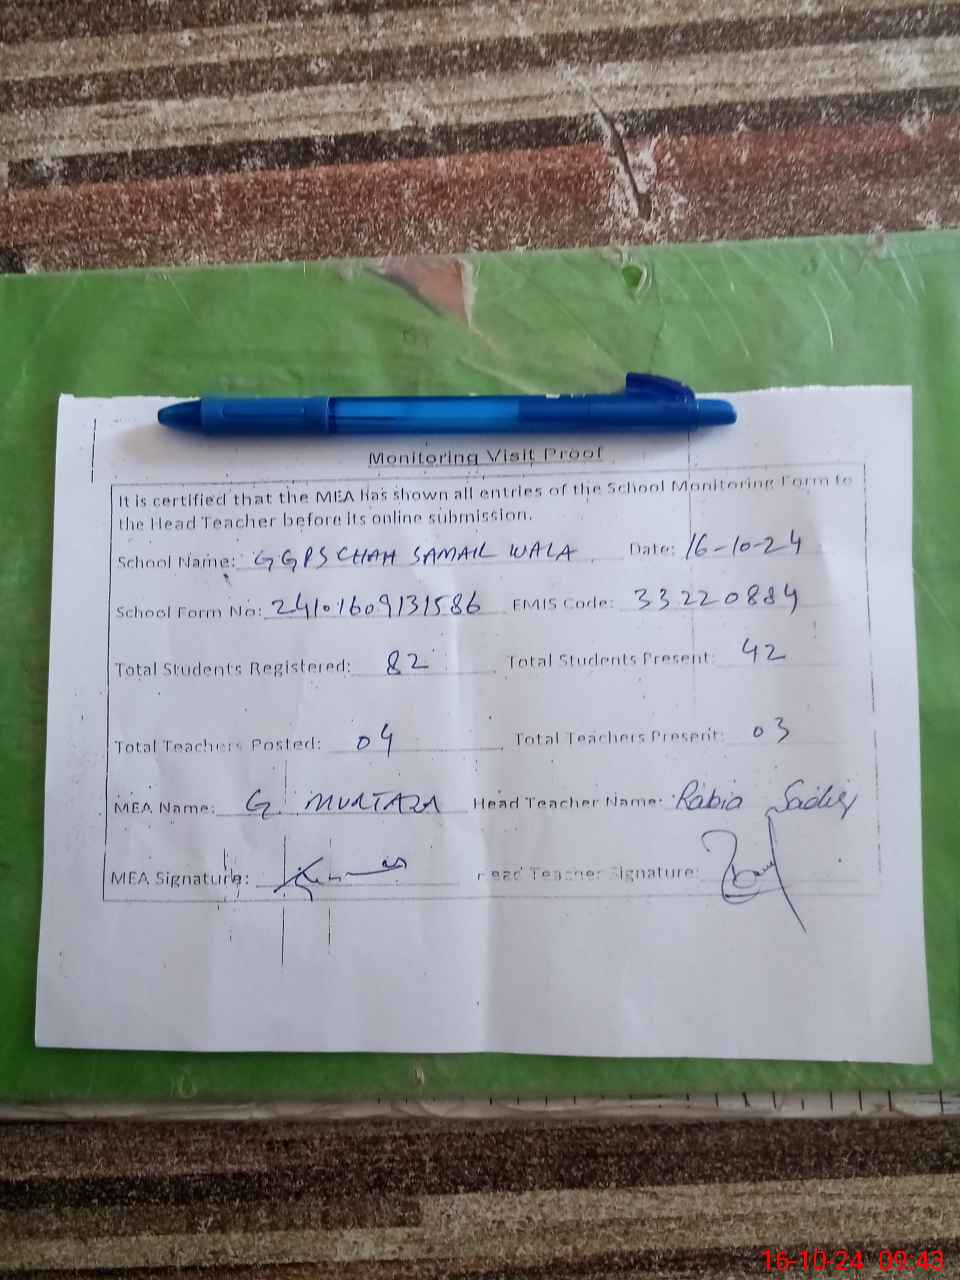 Monitoring Visit Proof
It is certified that the MEA has shown all entries of the School Monitoring Form to
the Head Teacher before its online submission.
School Name: GGPS CHAH SAMAIL WALA Date: 16-10-24
School Form No: 24101609131586 EMIS Code: 33220884
Total Students Registered: 82 Total Students Present: 42
Total Teachers Posted: 04 Total Teachers Present: 03
MEA Name: G. MURTAZA Head Teacher Name: Rabia
MEA Signature: Head Teacher Signature:
16-10-24 09:43